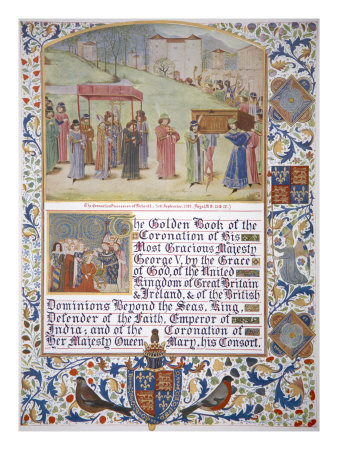 The Coronation Procession of Richard I., 3rd September, 1189.
The Golden Book of the
Coronation of His
Most Gracious Majesty
George V, by the Grace
of God, of the United
Kingdom of Great Britain
& Ireland, & of the British
Dominions Beyond the Seas, King,
Defender of the Faith, Emperor of
India; and of the Coronation of
Her Majesty Queen Mary, his Consort.